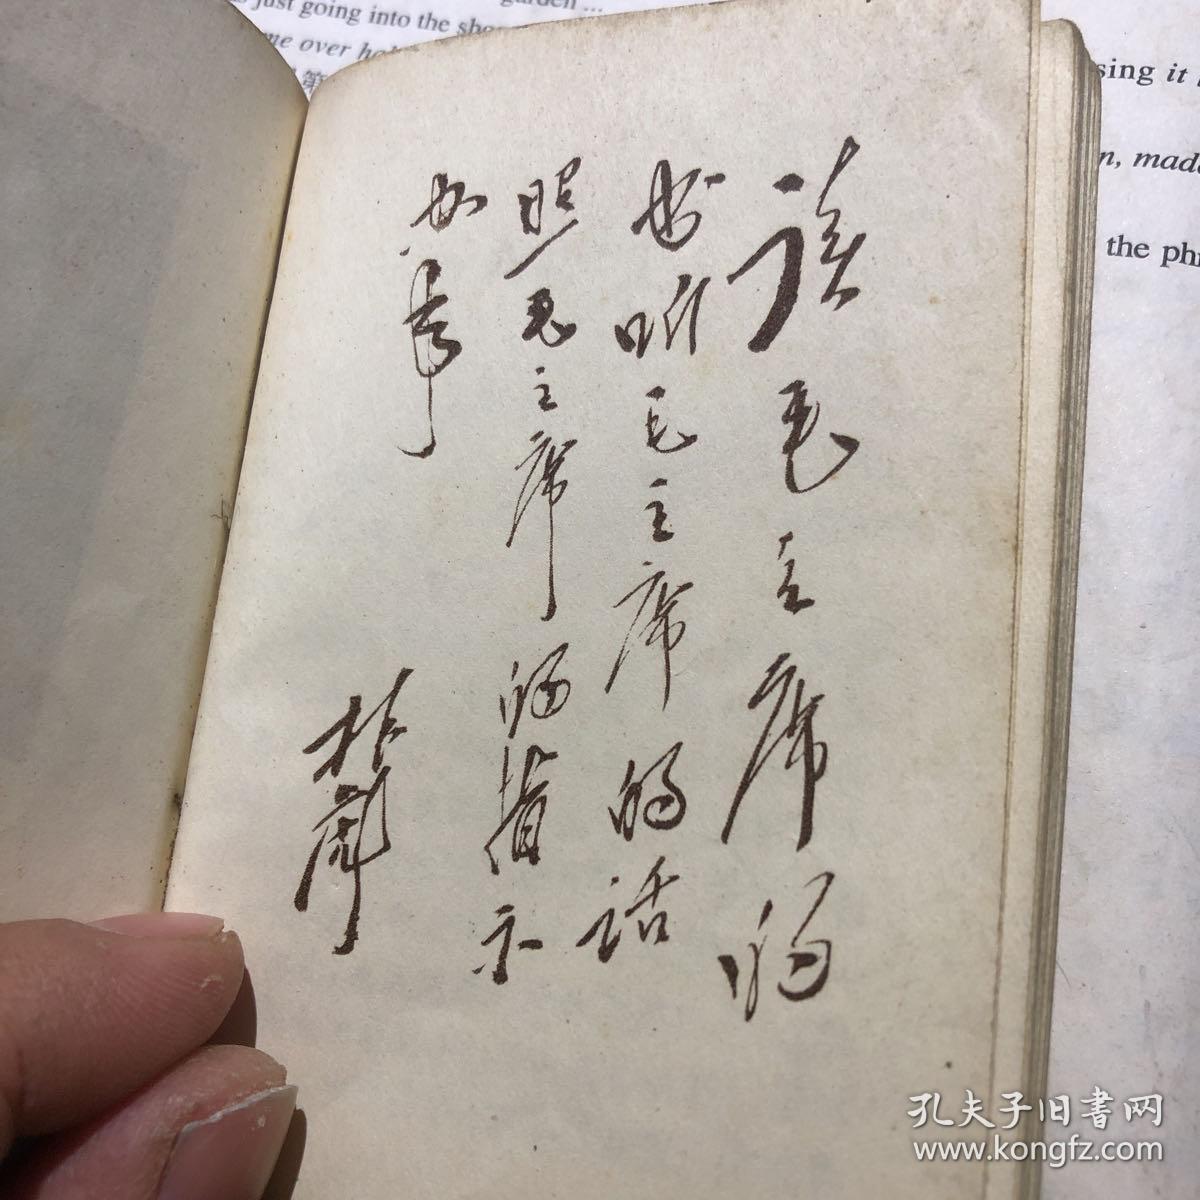 读毛主席的
书听毛主席的话
照毛主席的指示
办事
林彪
garden ...
s just going into the sho
me over ho
第
sing it
n, made
the phr
孔夫子旧書网
www.kongfz.com